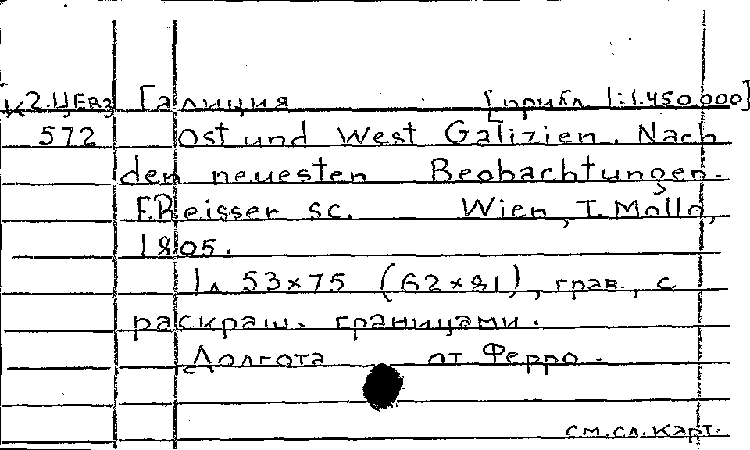 К2.ЦЕВЗ Галиция [прибл. 1:1.450 000]
572 Ost und West Galizien. Nach
den neuesten Beobachtungen.
F.Reisser sc. Wien, T. Mollo,
1805.
1л 53×75 (62×81), грав., с
раскраш. границами.
Долгота от Ферро.
см.сл.карт.